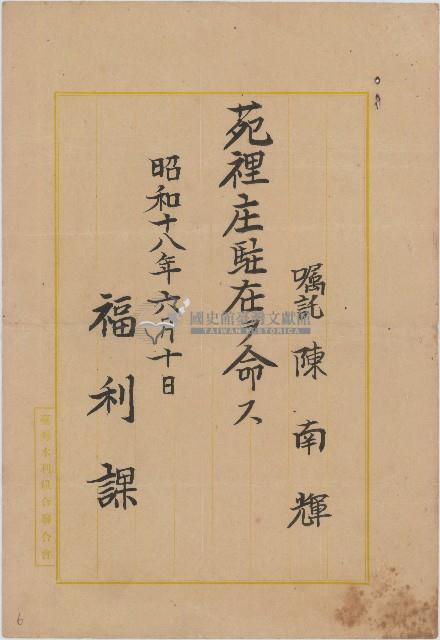 囑託 陳南輝
苑裡庄駐在ヲ命ス
昭和十八年六月十日
福利課
臺灣水利組合聯合會
國史館臺灣文獻館
TAIWAN HISTORICA
6